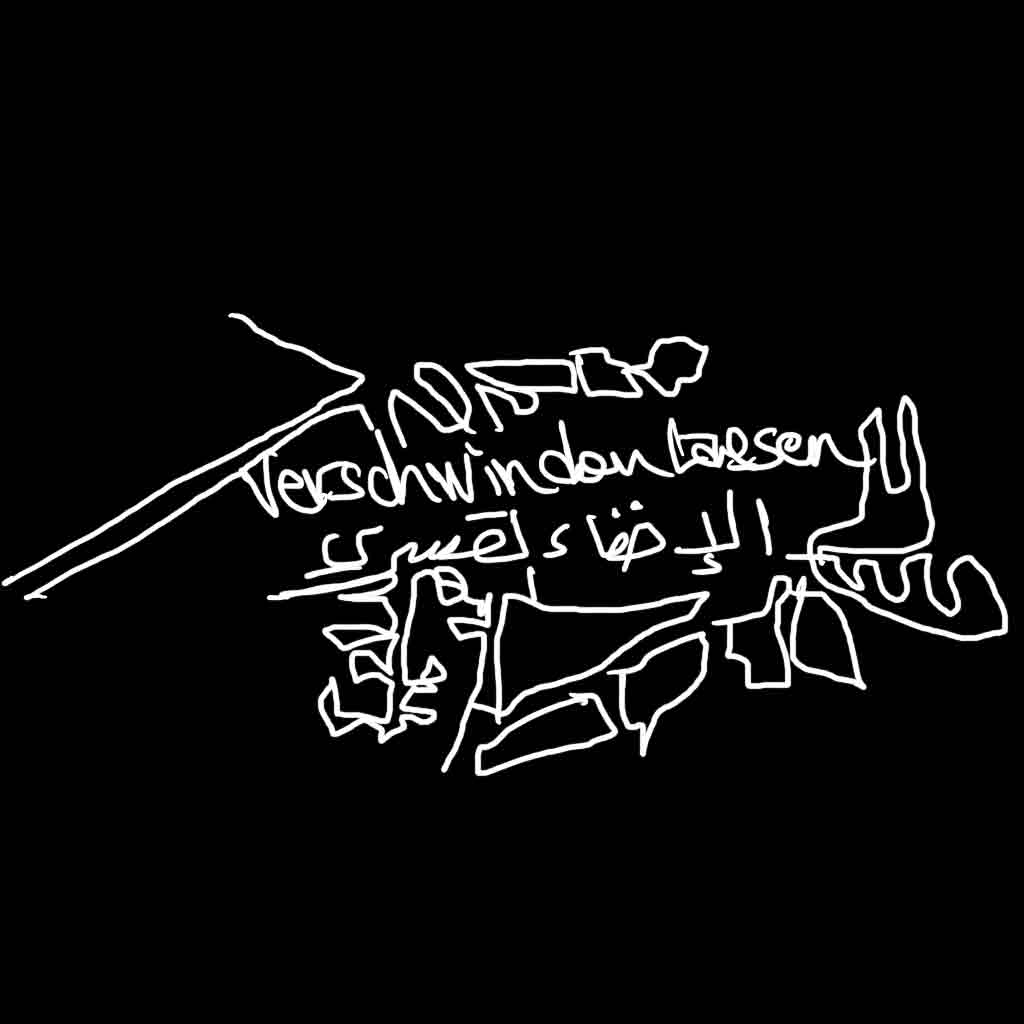 Verschwinden lassen
الإخفاء القسري